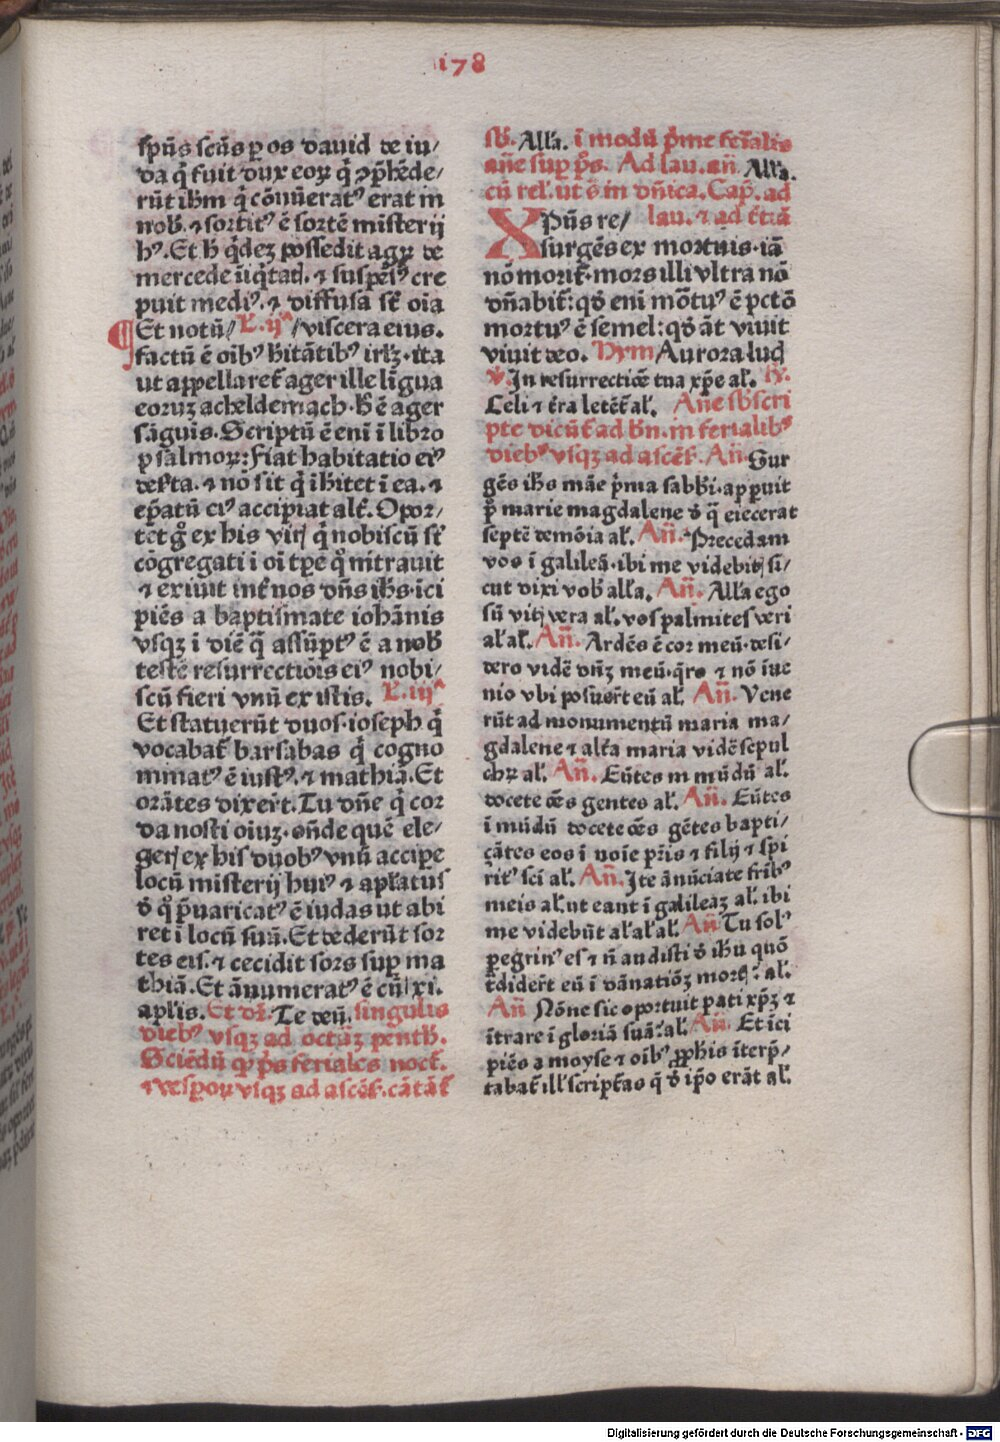 178
spūs scūs ꝑ os dauid de iu/
da q̇ fuit dux eoꝝ q̇ ꝯp̄hēde/
rūt ihm q̇ cōnūeratꝰ erat in
nob̄. ⁊ sortitꝰ ē sortē misterij
hꝰ. Et h̄ q̇deꝫ possedit agꝝ de
mercede iīq̇tat. ⁊ suspēsꝰ cre
puit mediꝰ. ⁊ diffusa st̄ oīa
¶ Et notū/ L. ijᵃ /viscera eius.
factū ē oībꝰ hītātibꝰ irlꝫ. ita
ut appellaret̄ ager ille līgua
eoruꝫ acheldemach. h̄ ē ager
sāguis. Scriptū ē eni ī libro
psalmoꝝ: Fiat habitatio eiꝰ
def̄ta. ⁊ nō sit q̇ īhītet ī ea. ⁊
ep̄atū eiꝰ accipiat alt̄. Opor/
tet gͦ ex his virꝭ q̇ nobiscū st̄
cōgregati ī oī tꝑe qͦ ītrauit
⁊ exiuit int̄ nos dn̄s ihs. īci
piēs a baptismate iohānis
vsqꝫ ī diē q̄ assūptꝰ ē a nob̄
testē resurrectiōis eiꝰ nobi/
scū fieri vnū ex istis. L. iijᵃ
Et statuerūt duos. ioseph q̇
vocabat̄ barsabas q̇ cogno
minatꝰ ē iustꝰ. ⁊ mathiā. Et
orātes dixert̄. Tu dn̄e q̇ cor
da nosti oiuꝫ. on̄de quē ele/
gerꝭ ex his duobꝰ vnū accipe
locū misterij huiꝰ ⁊ apl̄atus
d̄ qͦ p̄uaricatꝰ ē iudas ut abi
ret ī locū suū. Et dederūt sor
tes eis. ⁊ cecidit sors suꝑ ma
thiā. Et ānumeratꝰ ē cū xi.
apl̄is. Et dr̄. Te deū. singulis
diebꝰ vsqꝫ ad octāꝫ penth̄.
Sciēdū qꝙ p̄s feriales noct̄.
⁊ vesꝑoꝝ vsqꝫ ad ascēs̄. cātāt̄
sb̄. All̄a. ī modū p̄me feīalis
an̄e suꝑ p̄s. Ad lau. an̄ All̄a.
cū rel̄. ut s̄ in dn̄ica. Cap̄. ad
lau. ⁊ ad t̄tiā
Xpūs re/
surgēs ex mortuis. iā
nō morit̄. mors illi vltra nō
dn̄abit̄: qd̄ eni mōtuꝰ ē pctō
mortuꝰ ē semel: qd̄ āt viuit
viuit deo. Hym Aurora lucꝭ
℣. In resurrectiōe tua xp̄e al̄. ℟.
Celi ⁊ t̄ra letēt̄ al̄. An̄e sb̄scri
pte dicūt̄ ad bn̄. in ferialibꝰ
diebꝰ vsqꝫ ad ascēs̄. An̄. Sur
gēs ihs māe p̄ma sabb̄i. apꝑuit
p̄ marie magdalene d̄ q̄ eiecerat
septē demōia al̄. An̄. Precedam
vos ī galileā. ibi me videbitꝭ si/
cut dixi vob̄ all̄a. An̄. All̄a ego
sū vitꝭ vera al̄. vos palmites veri
al̄ al̄. An̄. Ardēs ē cor meū. desi/
dero vidē dn̄ꝫ meū. q̄ro ⁊ nō īue
nio vbi posuert̄ eū al̄. An̄. Vene
rūt ad monumentū maria ma/
gdalene ⁊ alt̄a maria vidē sepul
chꝝ al̄. An̄. Eūtes in mūdū al̄.
docete oēs gentes al̄. An̄. Eūtes
ī mūdū docete oēs gētes bapti/
ꝫātes eos ī noīe pr̄is ⁊ filij ⁊ spi
ritꝰ sci al̄. An̄. Ite ānūciate frībꝰ
meis al̄. ut eant ī galileaꝫ al̄. ibi
me videbūt al̄ al̄ al̄. An̄ Tu solꝰ
peregrinꝰ es ⁊ n̄ audisti d̄ ihu quō
t̄didert̄ eū ī dānatiōꝫ mortꝭ: al̄.
An̄ Nōne sic oportuit pati xp̄ꝫ ⁊
ītrare ī gloriā suā: al̄. An̄. Et īci
piēs a moyse ⁊ oībꝰ ꝓphis īterp̄/
tabat̄ ill̄ scripturas q̄ d̄ ip̄o erāt al̄.
Digitalisierung gefördert durch die Deutsche Forschungsgemeinschaft - DFG